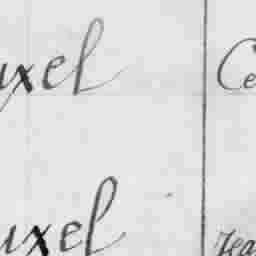 uxel
Ce
uxel
Jea